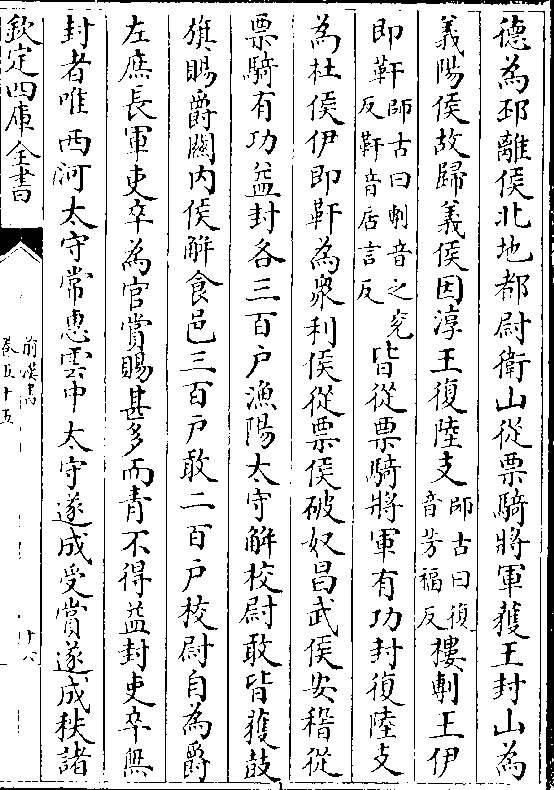 德為邳離侯北地都尉衛山從票騎將軍獲王封山為
義陽侯故歸義侯因淳王復陸支師古曰復音芳福反樓剸王伊
即靬師古曰剸音之兗反靬音居言反皆從票騎將軍有功封復陸支
為杜侯伊即靬為衆利侯從票侯破奴昌武侯安稽從
票騎有功益封各三百户漁陽太守解校尉敢皆獲鼓
旗賜爵關内侯解食邑三百户敢二百户校尉自為爵
左庶長軍吏卒為官賞賜甚多而青不得益封吏卒無
封者唯西河太守常惠雲中太守遂成受賞遂成秩諸
欽定四庫全書
前漢書
卷五十五
十六